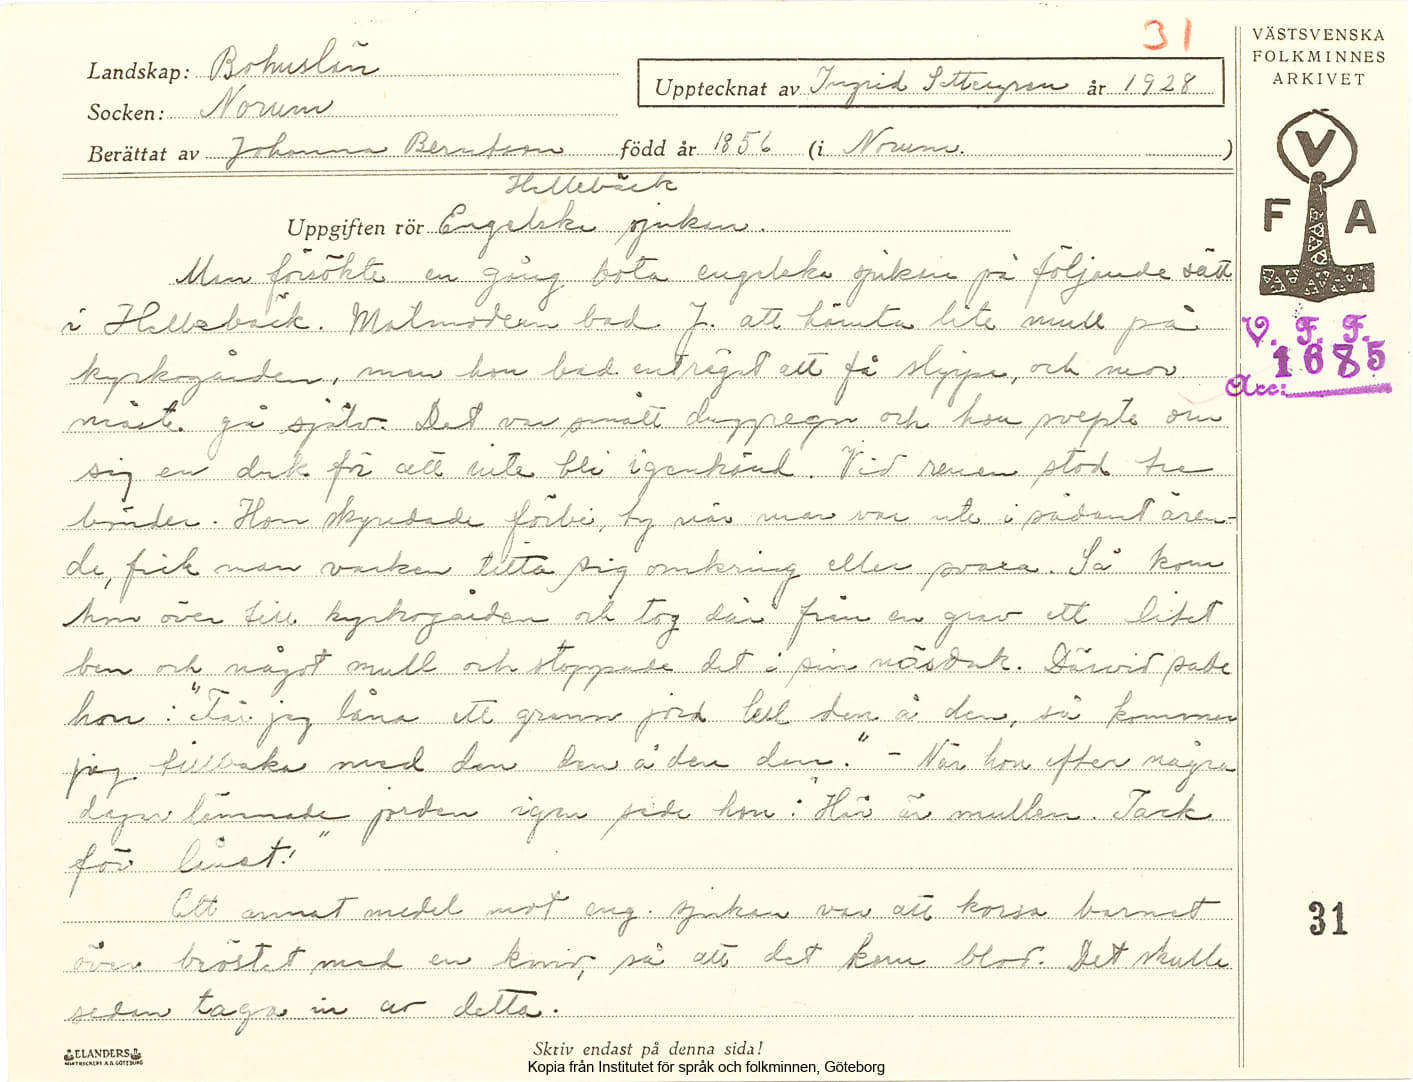 31
VÄSTSVENSKA
FOLKMINNES
ARKIVET
Landskap: Bohuslän
Upptecknat av Ingrid år 1928
Socken: Norum
Berättat av Johanna Berntsson född år 1856 (i Norum. )
Hällebäck
Uppgiften rör Engelska sjukan.
V
F A
Man försökte en gång bota engelska sjukan på följande sätt
i Hällebäck. Matmodern bad J. att hämta lite mull på
kyrkogården, men hon bad enträget att få slippa, och mor
måste gå själv. Det var smått duggregn och hon svepte om
sig en duk för att inte bli igenkänd. Vid renen stod tre
bönder. Hon skyndade förbi, ty när man var ute i sådant ären-
de, fick man varken titta sig omkring eller svara. Så kom
hon över till kyrkogården och tog där från en grav ett litet
ben och något mull och stoppade det i sin näsduk. Därvid sade
hon: "Får jag låna ett grann jord till den å den, så kommer
jag tillbaka med den den å den dan." - När hon efter några
dagar lämnade jorden igen sade hon: "Här är mullen. Tack
för lånet!"
Ett annat medel mot eng. sjukan var att korsa barnet
över bröstet med en kniv, så att det kom blod. Det skulle
sedan taga in av detta.
V. F. F.
1685
Acc:
31
ELANDERS
Skriv endast på denna sida!
Kopia från Institutet för språk och folkminnen, Göteborg